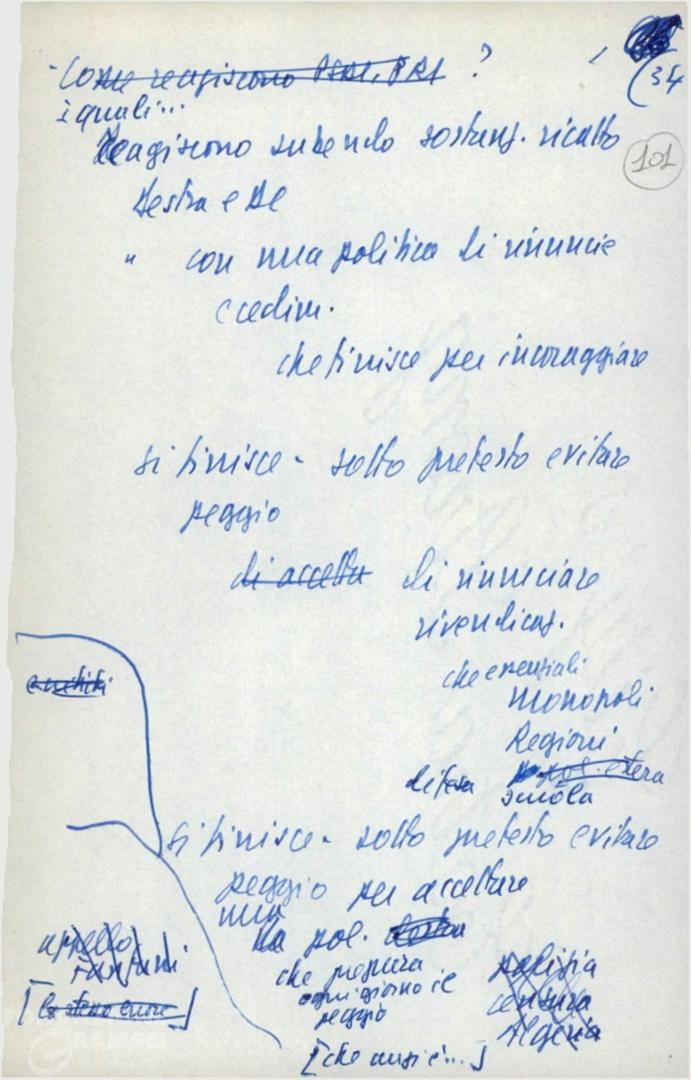 Come reagiscono PSDI, PRI ?
(34
i quali...
101
Reagiscono subendo sostanz. ricatto
destra e DC
" con una politica di rinuncie
e cedim.
che finisce per incoraggiare
si finisce - sotto pretesto evitare
peggio
di accetta di rinunciare
rivendicaz.
che essenziali
monopoli
Regioni
pol. estera
difesa scuola
si finisce - sotto pretesto evitare
peggio per accettare
una
la pol. destra
che prepara
ogni giorno il
peggio
polizia
censura
Algeria
appello
Fanfani
[lo stesso errore]
[che anzi è...]
GRAMSCI